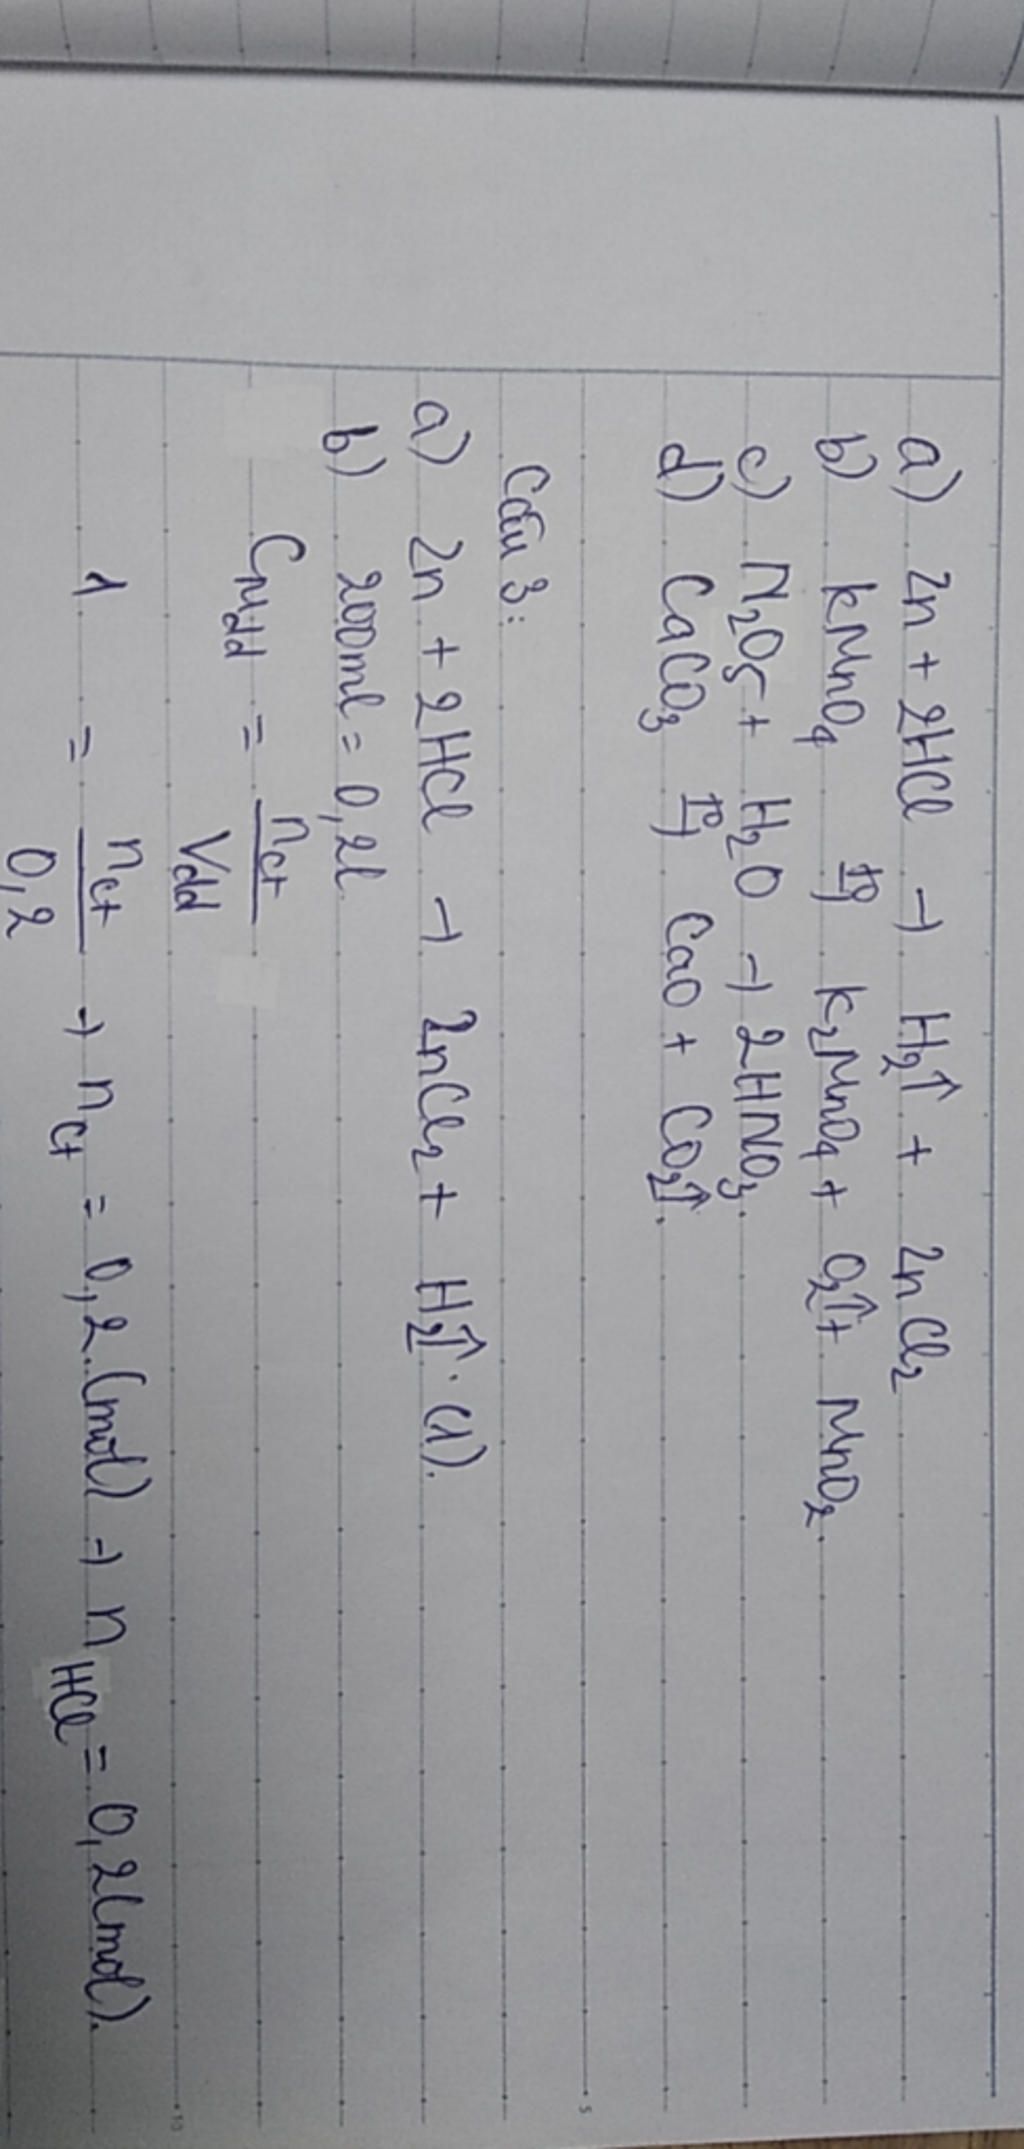 a) Zn + 2HCl → H₂↑ + ZnCl₂
b) KMnO₄ t°→ K₂MnO₄ + O₂↑ + MnO₂.
c) N₂O₅ + H₂O → 2HNO₃.
d) CaCO₃ t°→ CaO + CO₂↑.
Câu 3:
a) Zn + 2HCl → ZnCl₂ + H₂↑. (1).
b) 200ml = 0,2l
CMdd = nct / Vdd
1 = nct / 0,2 → nct = 0,2.(mol) → nHCl = 0,2(mol).